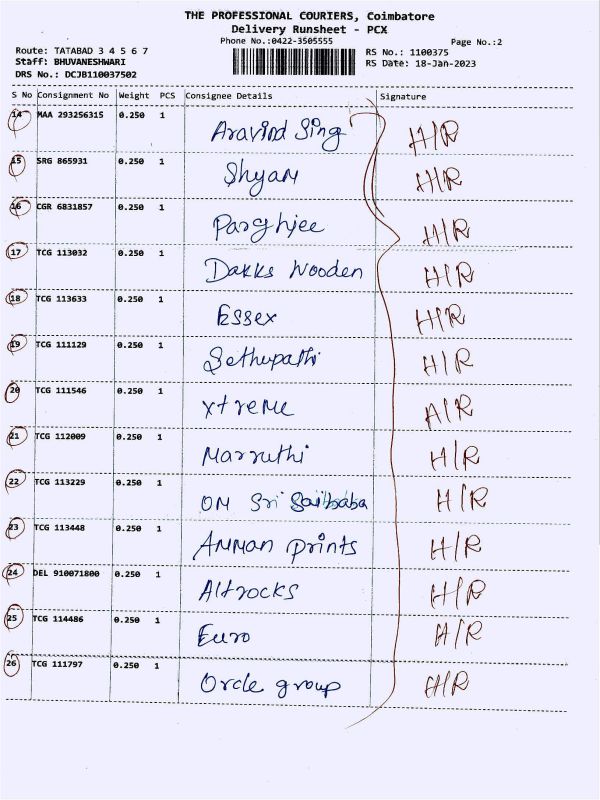 THE PROFESSIONAL COURIERS, Coimbatore
Delivery Runsheet - PCX
Phone No.:0422-3505555 Page No.:2
Route: TATABAD 3 4 5 6 7 RS No.: 1100375
Staff: BHUVANESHWARI RS Date: 18-Jan-2023
DRS No.: DCJB110037502
S No Consignment No Weight PCS Consignee Details Signature
14 MAA 293256315 0.250 1 Aravind Sing H/R
15 SRG 865931 0.250 1 Shyam H/R
16 CGR 6831857 0.250 1 Parghjee H/R
17 TCG 113032 0.250 1 Dakks Wooden H/R
18 TCG 113633 0.250 1 Essex H/R
19 TCG 111129 0.250 1 Sethupathi H/R
20 TCG 111546 0.250 1 Xtreme A/R
21 TCG 112009 0.250 1 Marruthi H/R
22 TCG 113229 0.250 1 OM Sri Saibaba H/R
23 TCG 113448 0.250 1 Amman prints H/R
24 DEL 910071800 0.250 1 Altrocks H/R
25 TCG 114486 0.250 1 Euro H/R
26 TCG 111797 0.250 1 Orcle group H/R